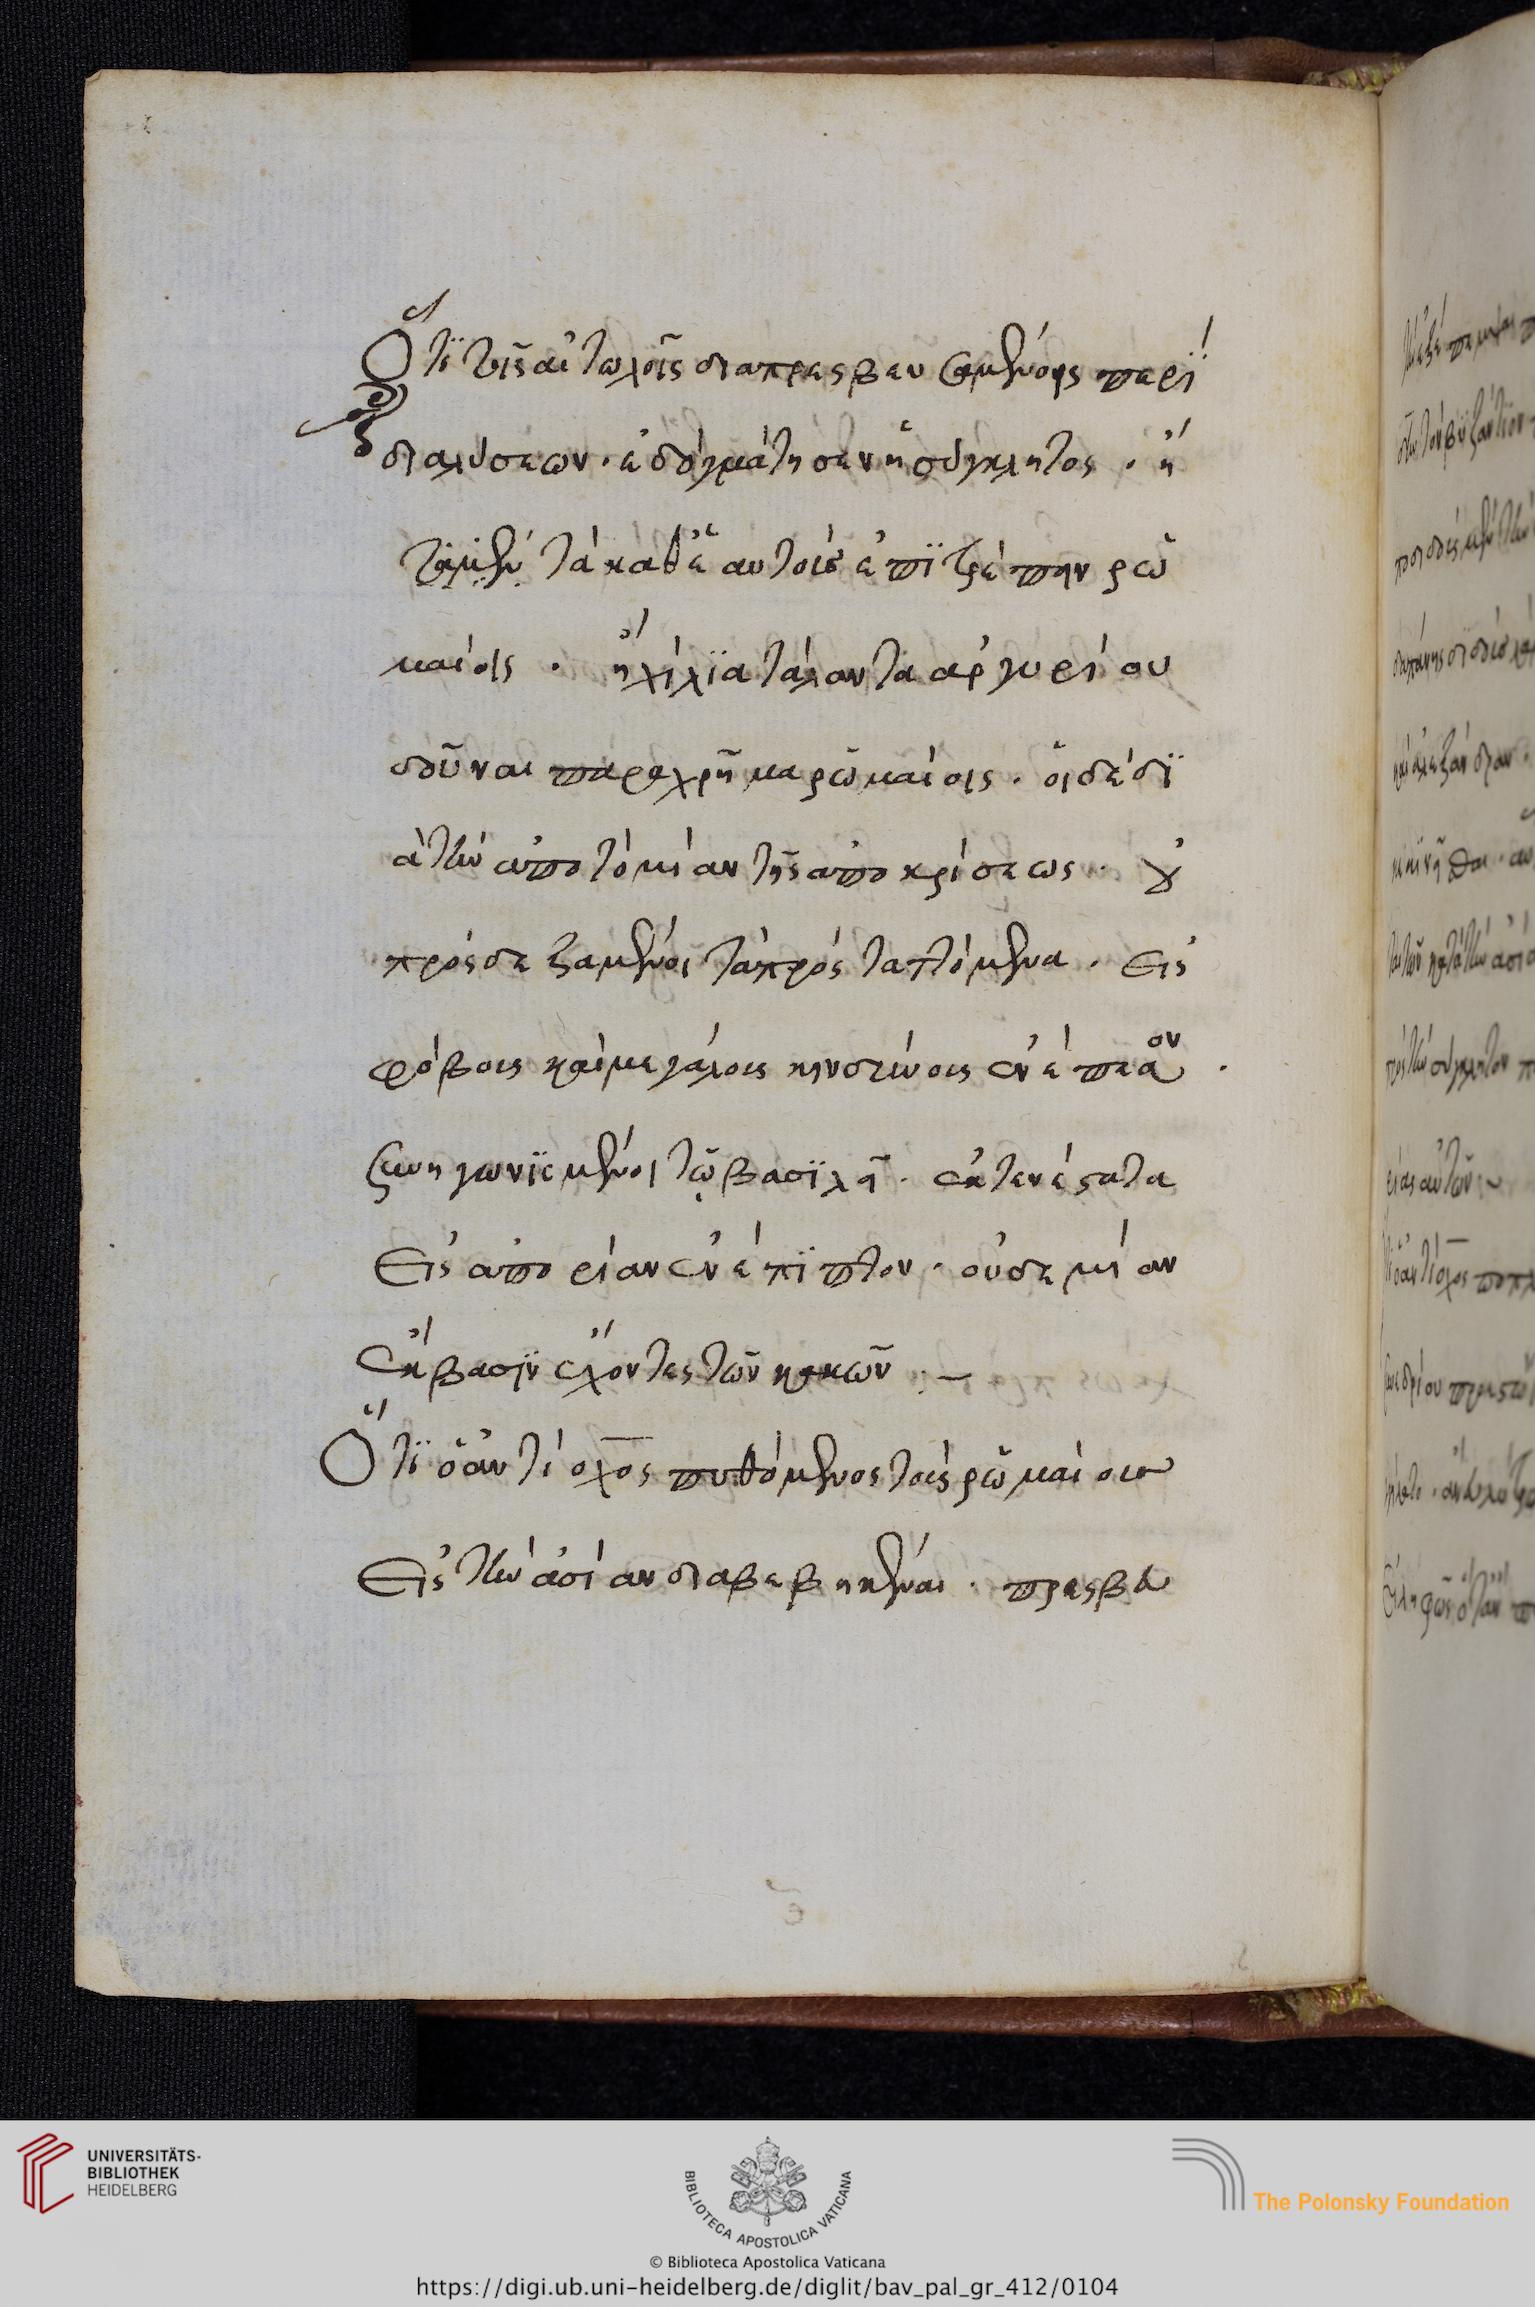 Ὅτι τοῖς αἰτωλοῖς διαπρεσβευσαμένοις περί
διαλύσεων · ἐδογμάτησεν ἡ σύγκλητος · ἤ
τὰ καθ ἑαυτοὺς ἐπιτρέπειν ῥω
μαίοις · ἢ χίλια τάλαντα ἀργυρίου
δοῦναι παραχρῆμα ῥωμαίοις · οἱ δὲ δι
ὰ τὴν ἀποτομίαν τῆς ἀποκρίσεως · οὐ
προσδεξάμενοι τὰ προσταττόμενα · εἰς
φόβους καὶ μεγάλους κινδύνους ἐνέπεσον ·
τῷ βασιλεῖ ·
εἰς ἀπορίαν ἐνέπιπτον · οὐδεμίαν
ἔκβασιν ἔχοντες τῶν κακῶν :—
Ὅτι ὁ ἀντίοχος πυθόμενος τοὺς ῥωμαίους
εἰς τὴν ἀσίαν διαβεβηκέναι · πρεσβευ
UNIVERSITÄTS-
BIBLIOTHEK
HEIDELBERG
BIBLIOTECA APOSTOLICA VATICANA
The Polonsky Foundation
© Biblioteca Apostolica Vaticana
https://digi.ub.uni-heidelberg.de/diglit/bav_pal_gr_412/0104